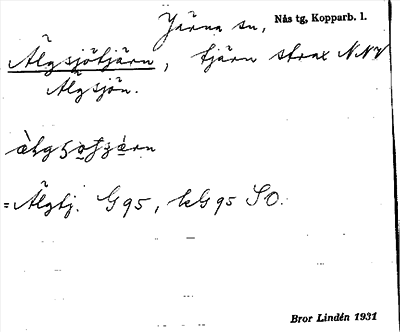 Järna sn, Nås tg, Kopparb. l.
Älgsjötjärn, tjärn strax NNV
Älgsjön.
= Älgtj. G 95, kG 95 SO.
Bror Lindén 1931